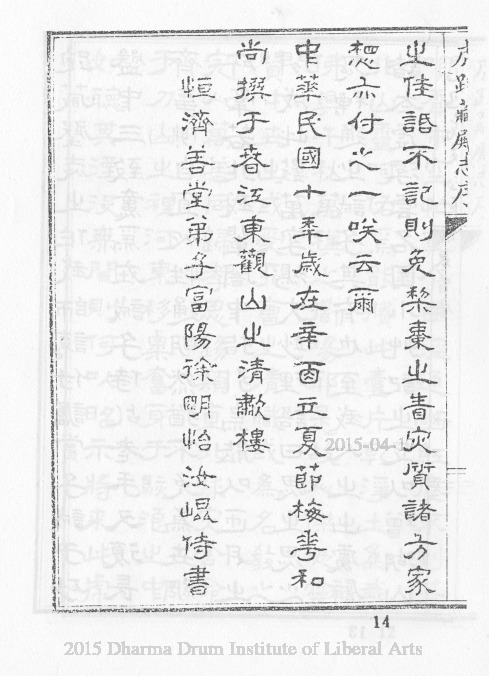 之佳話不記則免梨棗之眚灾質諸方家
想亦付之一咲云爾
中華民國十年歲在辛酉立夏節梅華和
尚撰于春江東觀山之清歗樓
恒濟善堂弟子富陽徐明怡汝崐侍書
14
2015-04-1
2015 Dharma Drum Institute of Liberal Arts